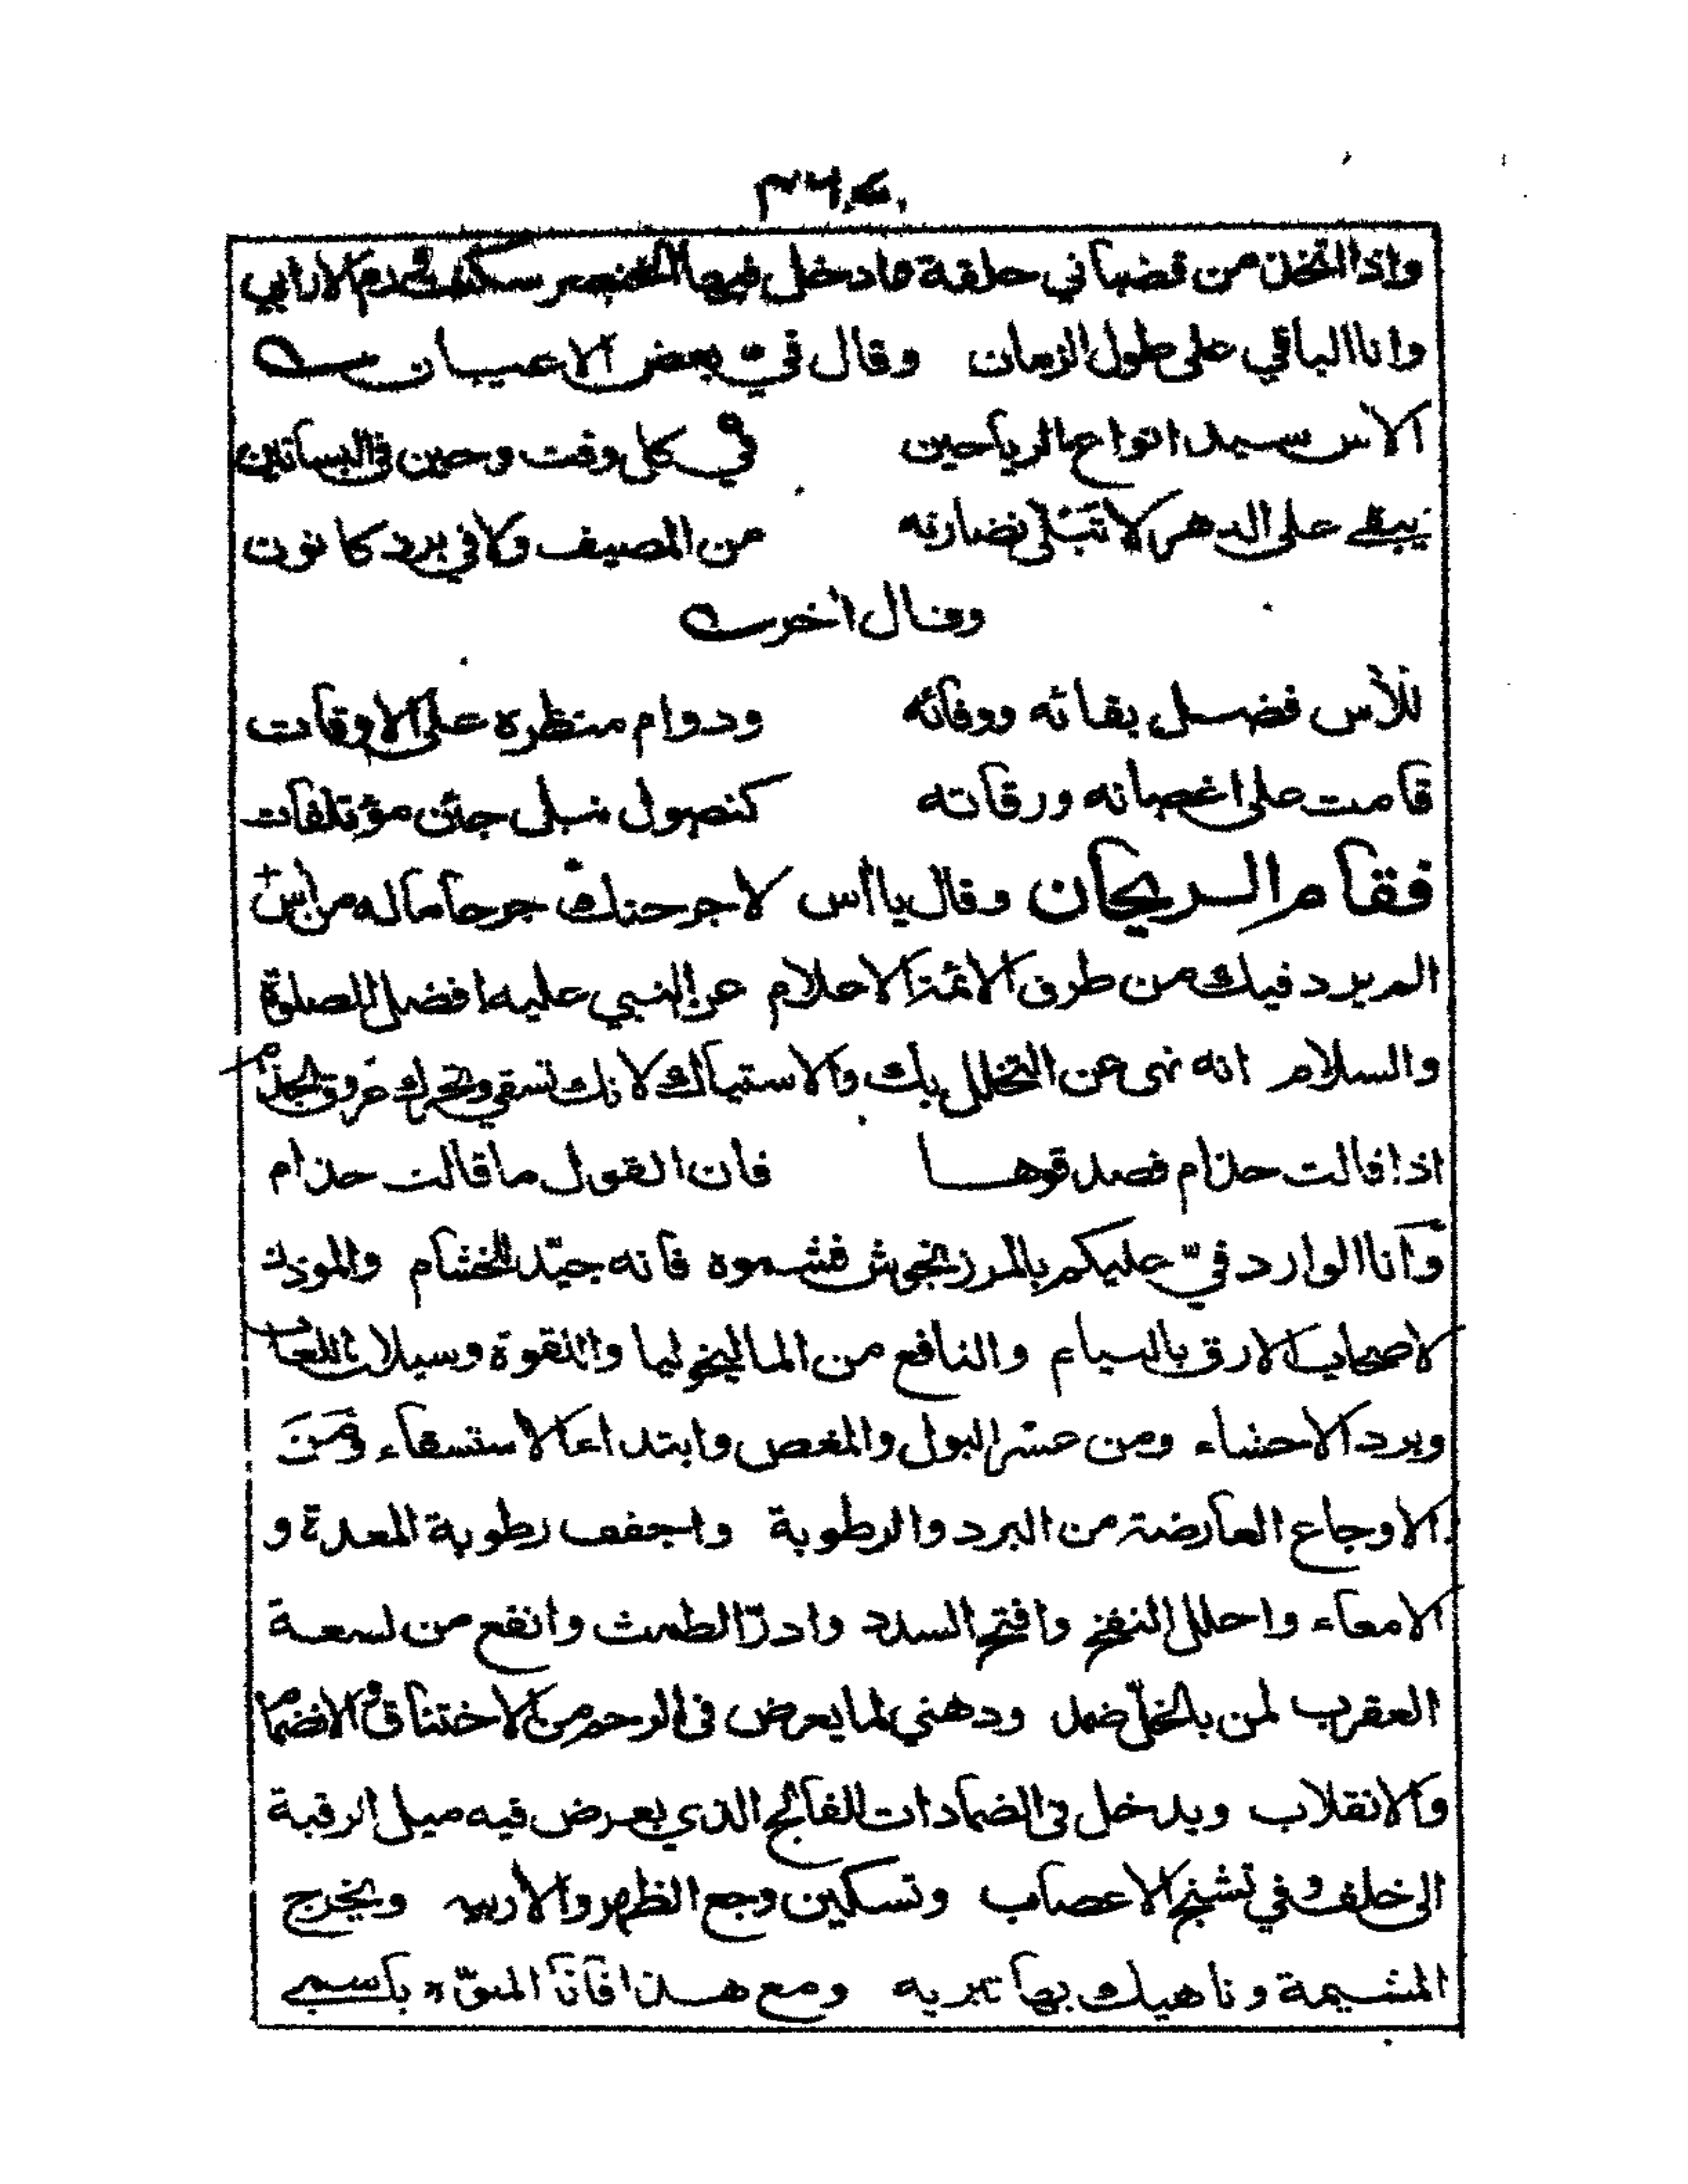 واذا اتخذ من قضباني حلقة وادخل فيها الخنصر سكنت الارابي
وانا الباقي على طول الزمان وقال فيّ بعض الاعيان
الآس سيد انواع الرياحين في كل وقت وحين في البساتين
يبقى على الدهر لا تبلى نضارته من المصيف ولا في برد كانون
وقال اخر
للآس فضل بقائه ووفائه ودوام منظره على الاوقات
قامت على اغصانه ورقاته كنصول نبل جئن مؤتلفات
فقام الريحان وقال يا آس لاجرحنك جرحا ما له من اس
الم يرد فيك من طرق الائمة الاعلام عن النبي عليه افضل الصلوة
والسلام انه نهى عن التخلل بك والاستياك لانك تسقي وتحرك عروق الجذام
اذا قالت حذام فصدقوها فان القول ما قالت حذام
وانا الوارد فيّ عليكم بالمرزنجوش فشموه فانه جيّد للخشام
والنافع من الماليخوليا واللقوة وسيلان اللعاب
وبرد الاحشاء ومن عسر البول والمغص وابتداء الاستسقاء ومن
الاوجاع العارضة من البرد والرطوبة واجفف رطوبة المعدة و
الامعاء واحلل النفخ وافتح السدد وادرّ الطمث وانفع من لسعة
العقرب لمن بالخلّ ضمد ودهني لما يعرض في الرحم من الاختناق والانضمام
والانقلاب ويدخل في الضمادات للفالج الذي يعرض فيه ميل الرقبة
الى خلف وفي تشنج الاعصاب وتسكين وجع الظهر والاربيه ويخرج
المشيمة وناهيك بها تبريه ومع هذا فانا المنوّه باسمي